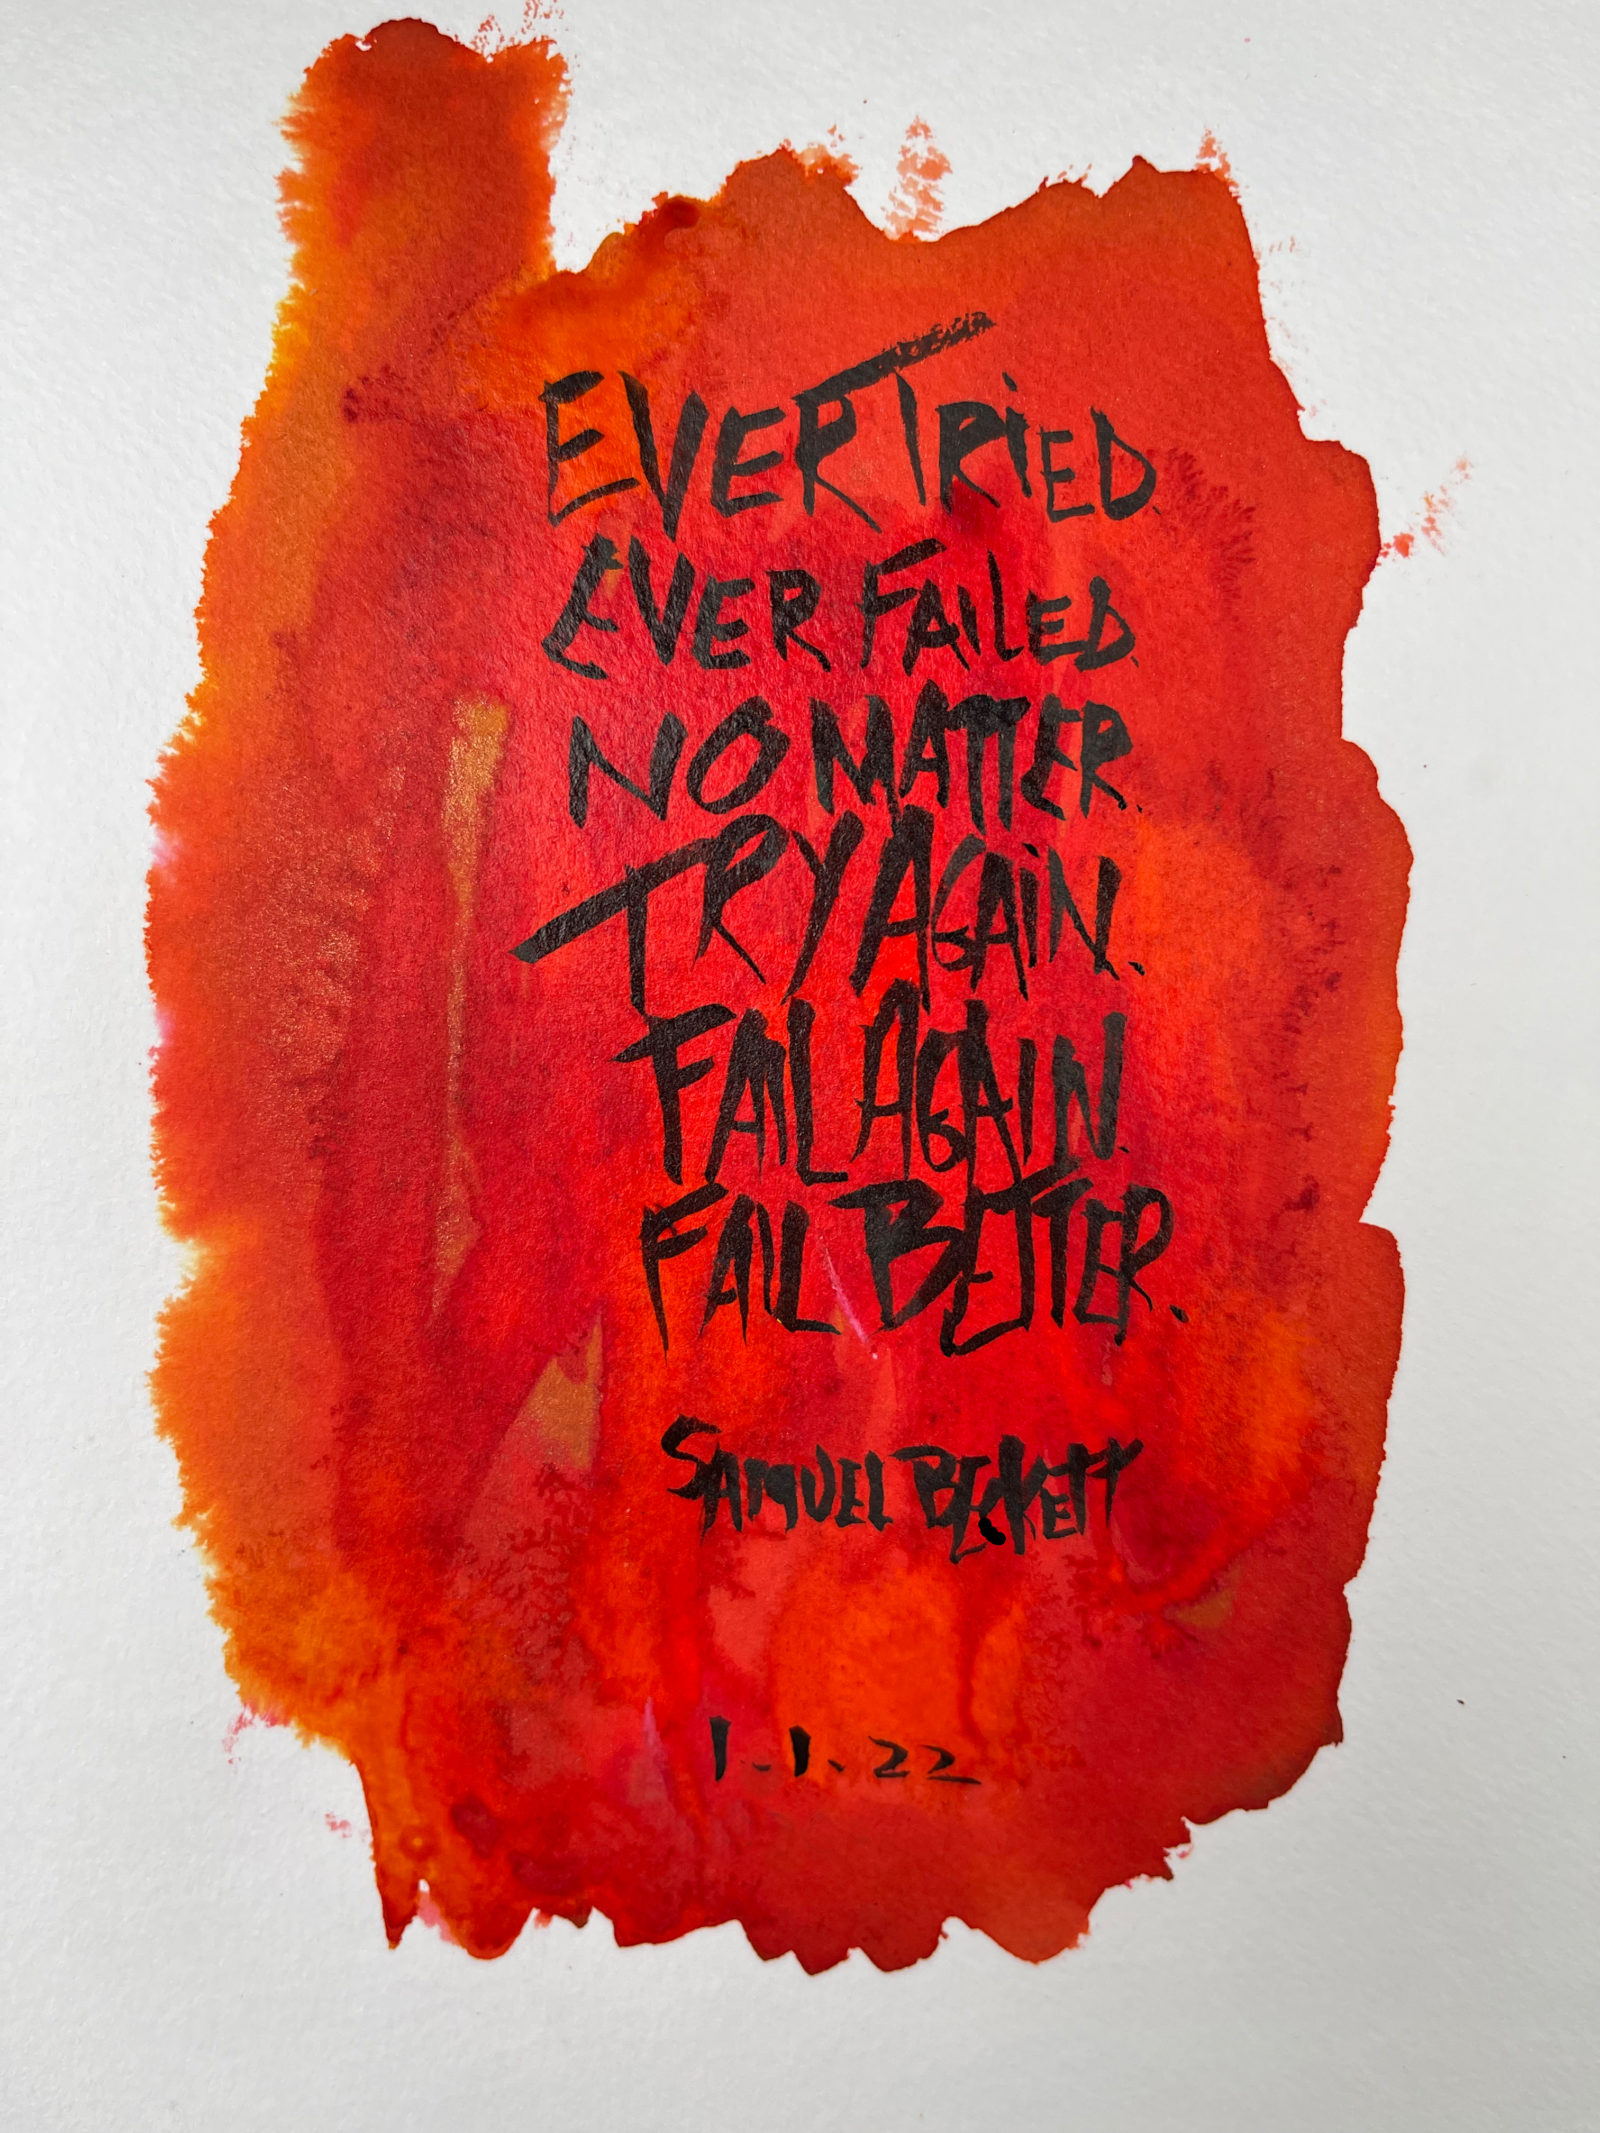 EVER TRiED.
EVER FAiLED.
NO MATTER.
TRY AGAiN.
FAIL AGAIN.
FAIL BETTER.
SAMUEL BECKETT
1.1.22